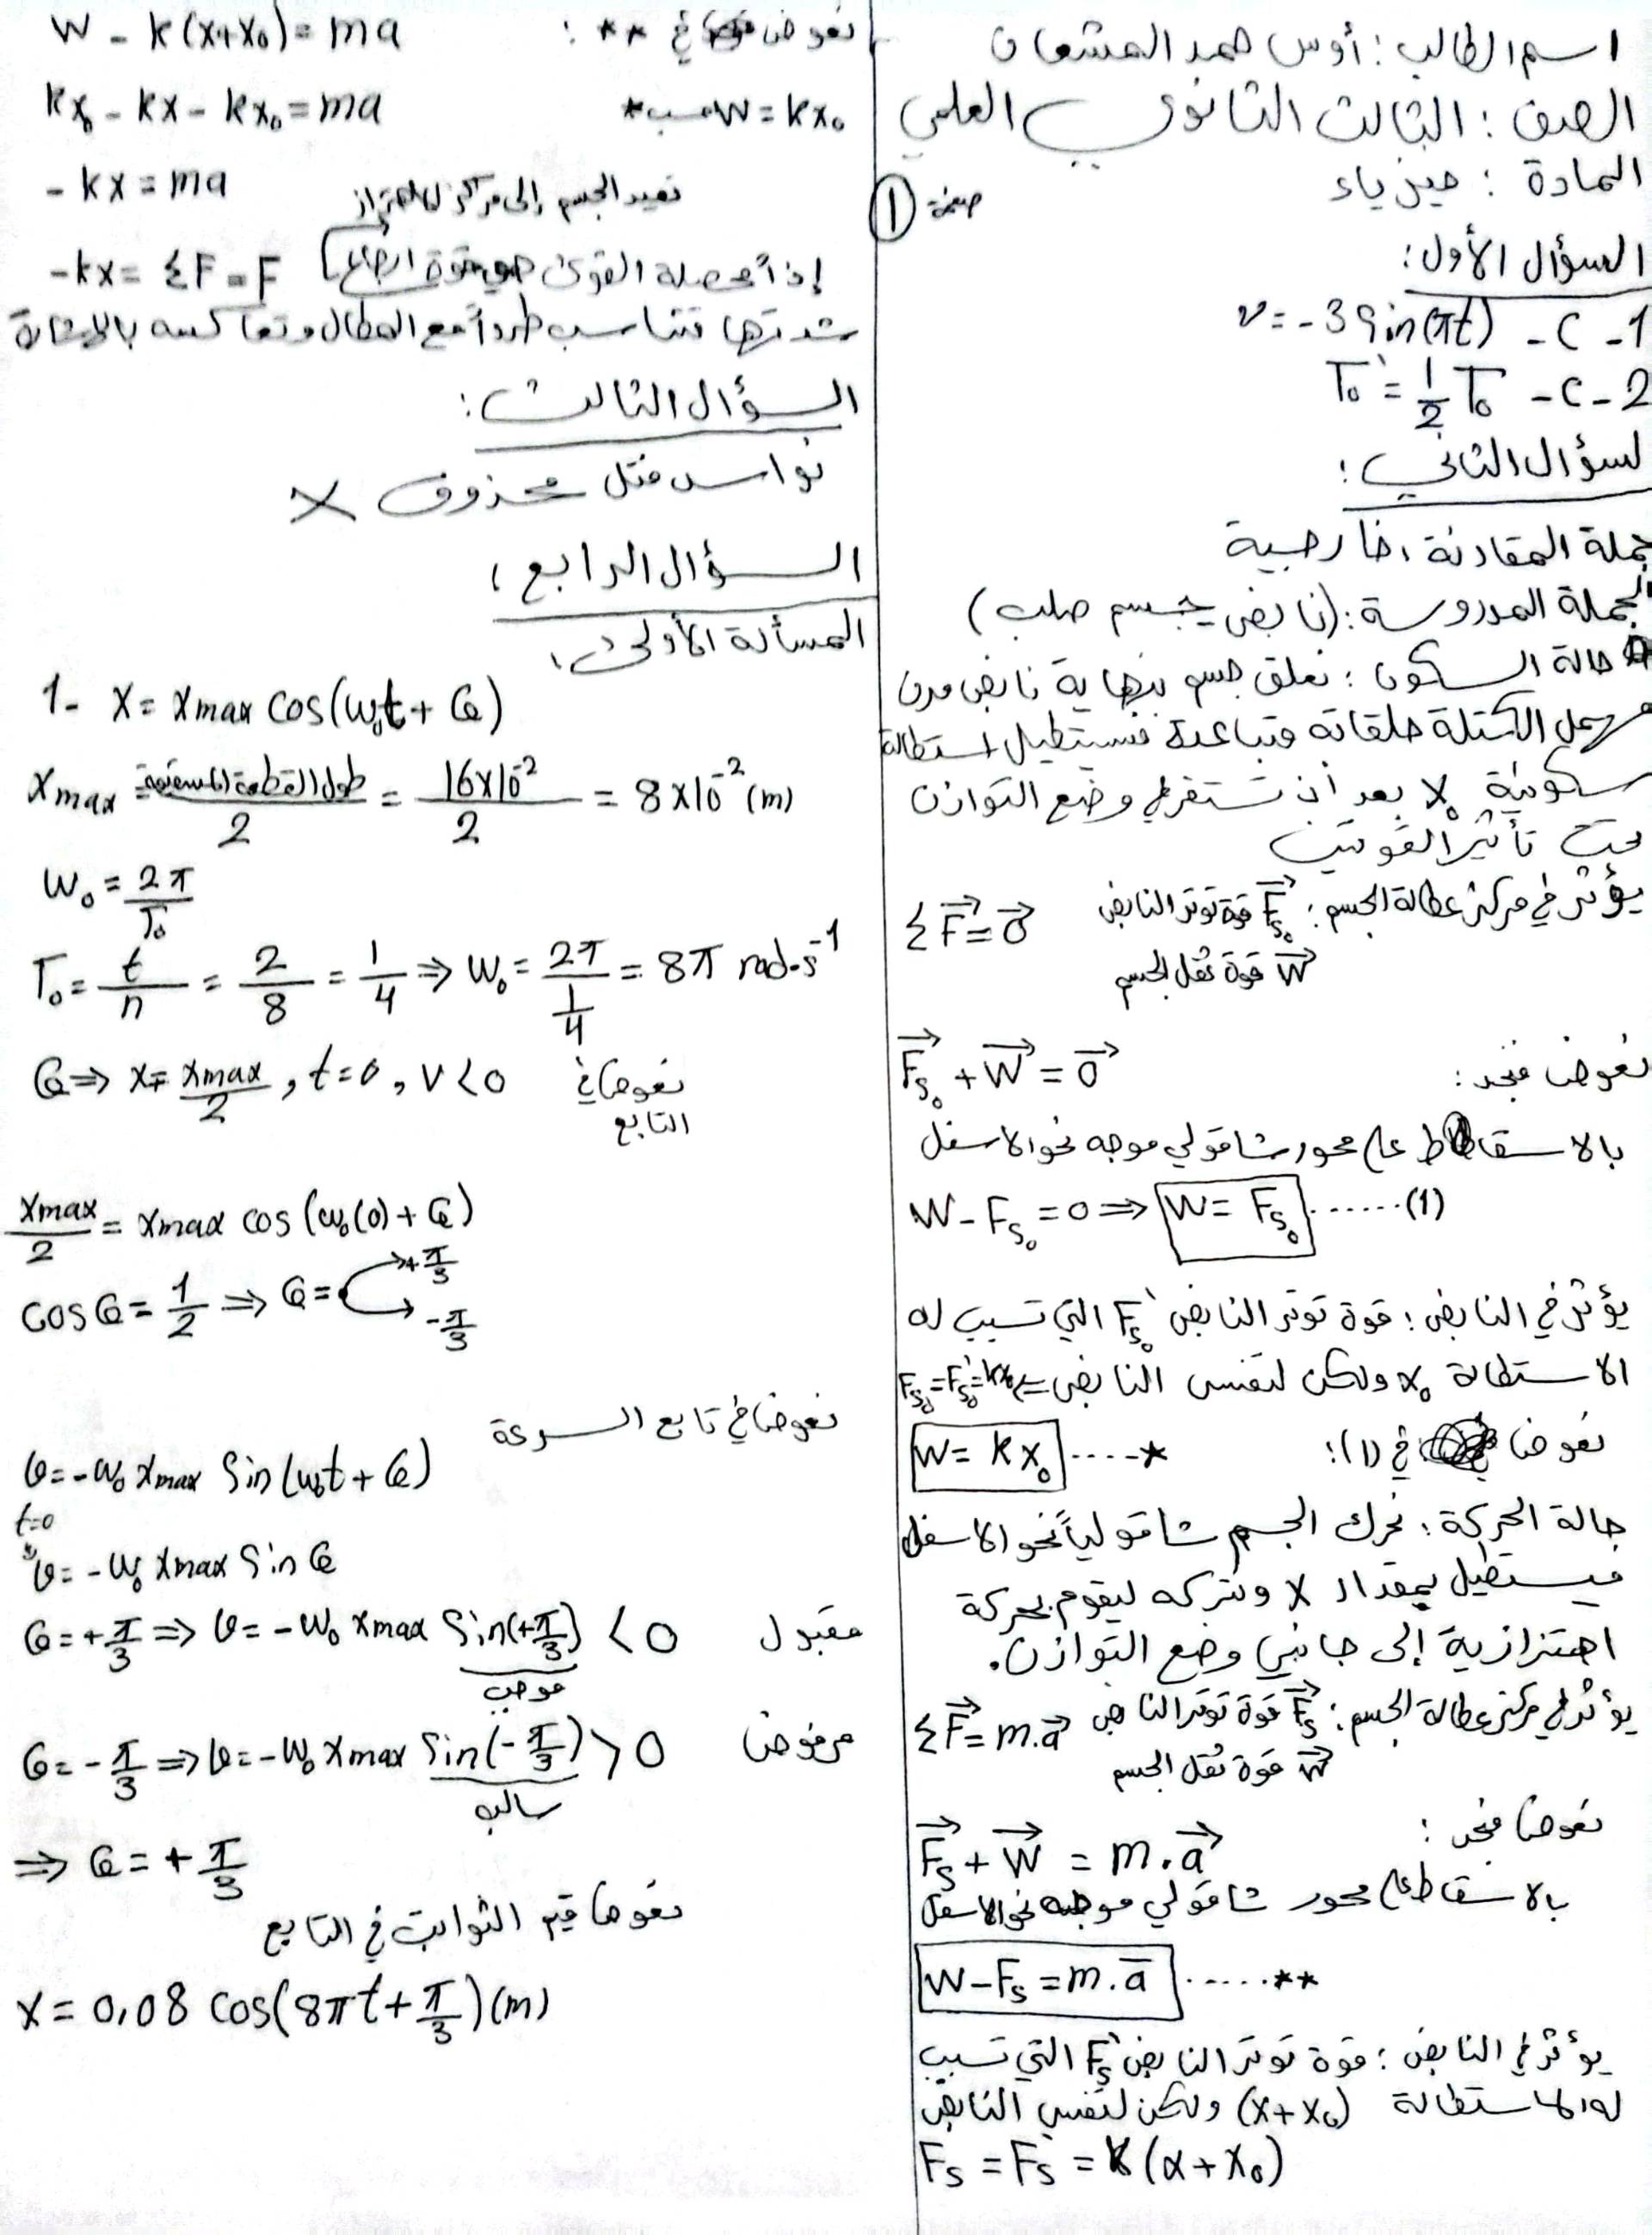 اسم الطالب : أوس حمد المشعان
الصف : الثالث الثانوي العلمي
المادة : فيزياء
صفحة ①
السؤال الأول :
1 - C - v = -3 sin(πt)
2 - C - T₀' = 1/2 T₀
السؤال الثاني :
جملة المقارنة : خارجية
الجملة المدروسة : (نابض - جسم صلب)
حالة السكون : نعلق جسم بنهاية نابض مرن
مهمل الكتلة حلقاته متباعدة فيستطيل استطالة
سكونية x₀ بعد أن تستقر في وضع التوازن
تحت تأثير القوتين
يؤثر في مركز عطالة الجسم : F⃗s₀ قوة توتر النابض
W⃗ قوة ثقل الجسم
ΣF⃗ = 0⃗
نعوض فنجد :
F⃗s₀ + W⃗ = 0⃗
بالاسقاط على محور شاقولي موجه نحو الاسفل
W - Fs₀ = 0 ⇒ W = Fs₀ ......(1)
يؤثر في النابض : قوة توتر النابض F's₀ التي تسبب له
الاستطالة x₀ ولكن لنفس النابض ⇒ Fs₀ = F's₀ = kx₀
نعوض في (1) :
W = kx₀ .....*
حالة الحركة : نحرك الجسم شاقولياً نحو الاسفل
فيستطيل بمقدار x ونتركه ليقوم بحركة
اهتزازية إلى جانبي وضع التوازن.
يؤثر في مركز عطالة الجسم : F⃗s قوة توتر النابض
W⃗ قوة ثقل الجسم
ΣF⃗ = m.a⃗
نعوض فنجد :
F⃗s + W⃗ = m.a⃗
بالاسقاط على محور شاقولي موجه نحو الاسفل
W - Fs = m.a̅ ......**
يؤثر في النابض : قوة توتر النابض F's التي تسبب
له الاستطالة (x+x₀) ولكن لنفس النابض
Fs = F's = k(x+x₀)
نعوض في ** :
W - k(x+x₀) = ma
W = kx₀ حسب *
kx₀ - kx - kx₀ = ma
-kx = ma
تعيد الجسم إلى مركز الاهتزاز
إذاً محصلة القوى هي قوة ارجاع
-kx = ΣF = F
شدتها تتناسب طرداً مع المطال وتعاكسه بالإشارة
السؤال الثالث :
نواس فتل محذوف X
السؤال الرابع :
المسألة الأولى :
1- x = xmax cos(ω₀t + φ)
xmax = طول القطعة المستقيمة / 2 = 16×10⁻² / 2 = 8×10⁻² (m)
ω₀ = 2π / T₀
T₀ = t/n = 2/8 = 1/4 ⇒ ω₀ = 2π / (1/4) = 8π rad.s⁻¹
φ ⇒ x = xmax/2 , t=0 , v<0 نعوض في
التابع
xmax/2 = xmax cos(ω₀(0) + φ)
cos φ = 1/2 ⇒ φ = +π/3
-π/3
نعوض في تابع السرعة
v = -ω₀ xmax sin(ω₀t + φ)
t=0
v = -ω₀ xmax sin φ
φ = +π/3 ⇒ v = -ω₀ xmax sin(+π/3) < 0 مقبول
موجب
φ = -π/3 ⇒ v = -ω₀ xmax sin(-π/3) > 0 مرفوض
سالب
⇒ φ = +π/3
نعوض قيم الثوابت في التابع
x = 0,08 cos(8πt + π/3) (m)